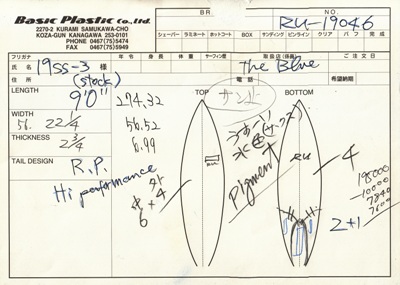 Basic Plastic Co., Ltd.
2270-2 KURAMI SAMUKAWA-CHO
KOZA-GUN KANAGAWA 253-0101
PHONE 0467(75)5474
FAX 0467(75)5949
BR.
NO.
RU-19046
シェーパー ラミネート ホットコート BOX サンディング ピンライン クリア バフ 完了
フリガナ
サーフィン歴
取扱店(係員)
ご注文日
氏名
19SS-3 様
年 令
The Blue
住所
(stock)
電話
希望納期
LENGTH
9'0"
274.32
TOP
サンド
BOTTOM
WIDTH
56. 22 1/4
56.52
THICKNESS
2 3/4
6.99
うすい
水色
Pigment
RU
RU
4
TAIL DESIGN
R.P.
Hi performance
4
6
2+1
195000
-10000
7840